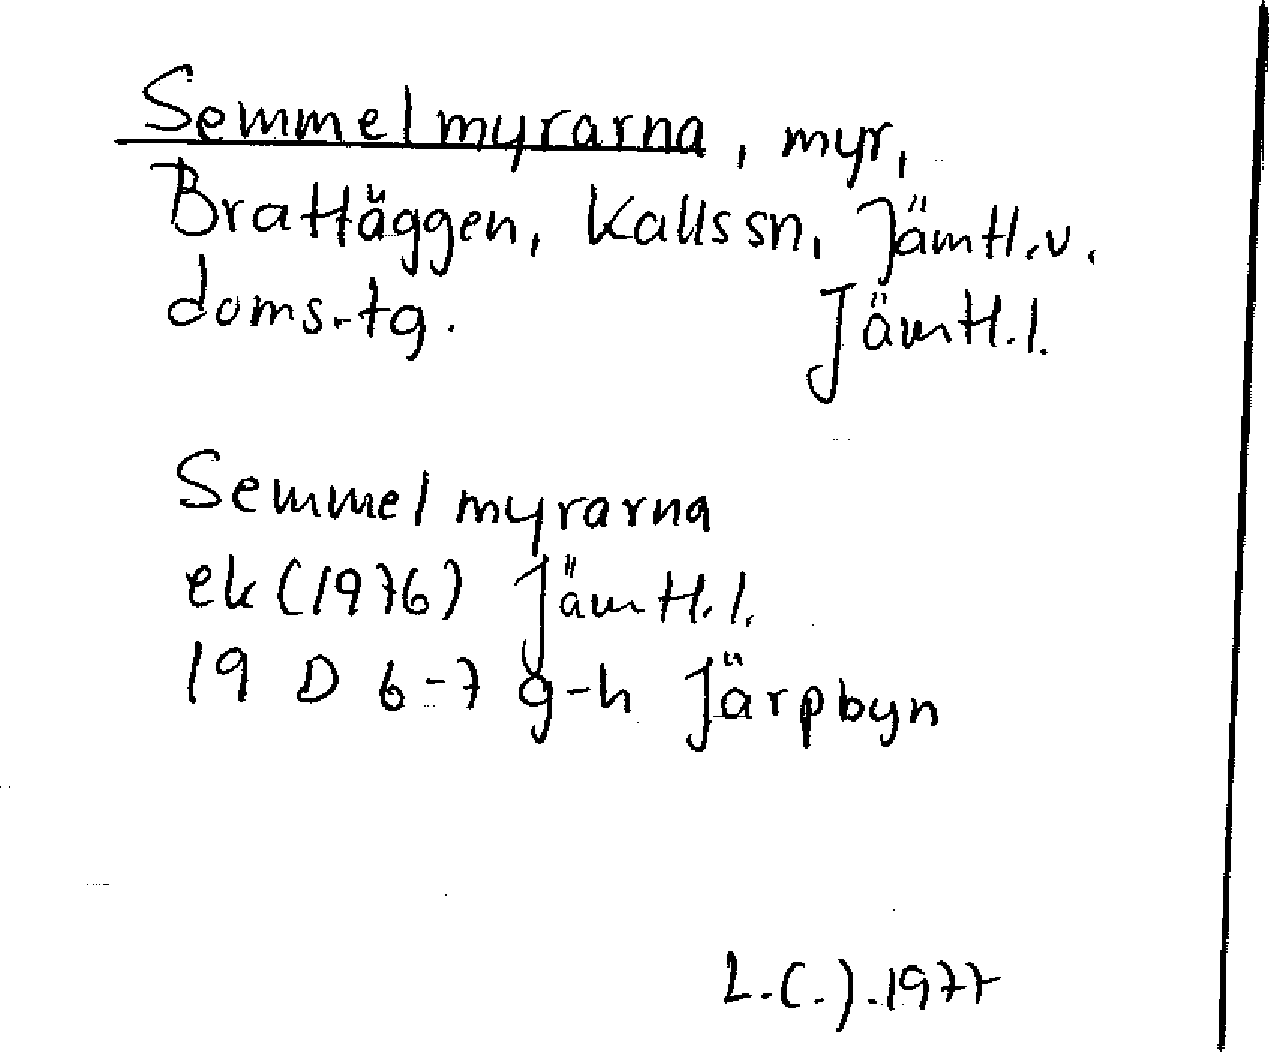 Semmelmyrarna, myr,
Brattäggen, Kalls sn, Jämtl.v.
doms.tg. Jämtl.l.
Semmelmyrarna
ek (1976) Jämtl.l.
19 D 6-7 g-h Järpbyn
L.C.J.1977